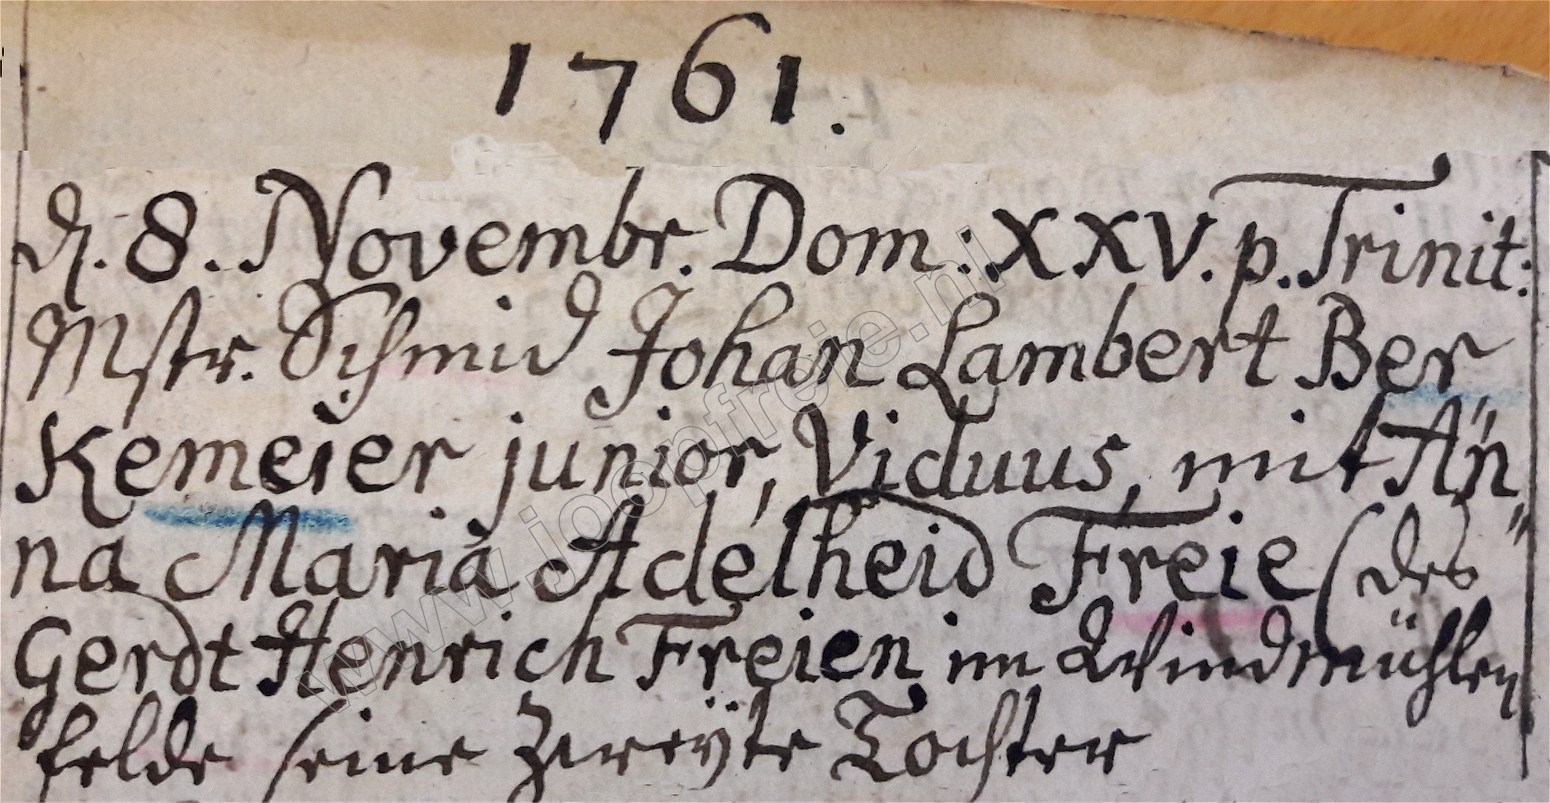 1761.
d. 8. Novembr. Dom: XXV. p. Trinit:
Mstr. Schmid Johan Lambert Ber
Kemeier junior, Viduus, mit An"
na Maria Adelheid Freie (des
Gerdt Henrich Freien im Windmühlen
felde seine Zweÿte Tochter
www.joopfreie.nl